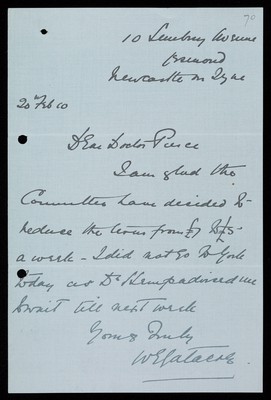 70
10 Lambury Avenue
Gosmond
Newcastle on Tyne
20th Feb 10
Dear Doctor Pierce
I am glad the
Committee have decided to
reduce the terms from £7 to £5
a week - I did not go to York
today as Dr Hemp advised me
to wait till next week
Yours Truly
W E Gatacre